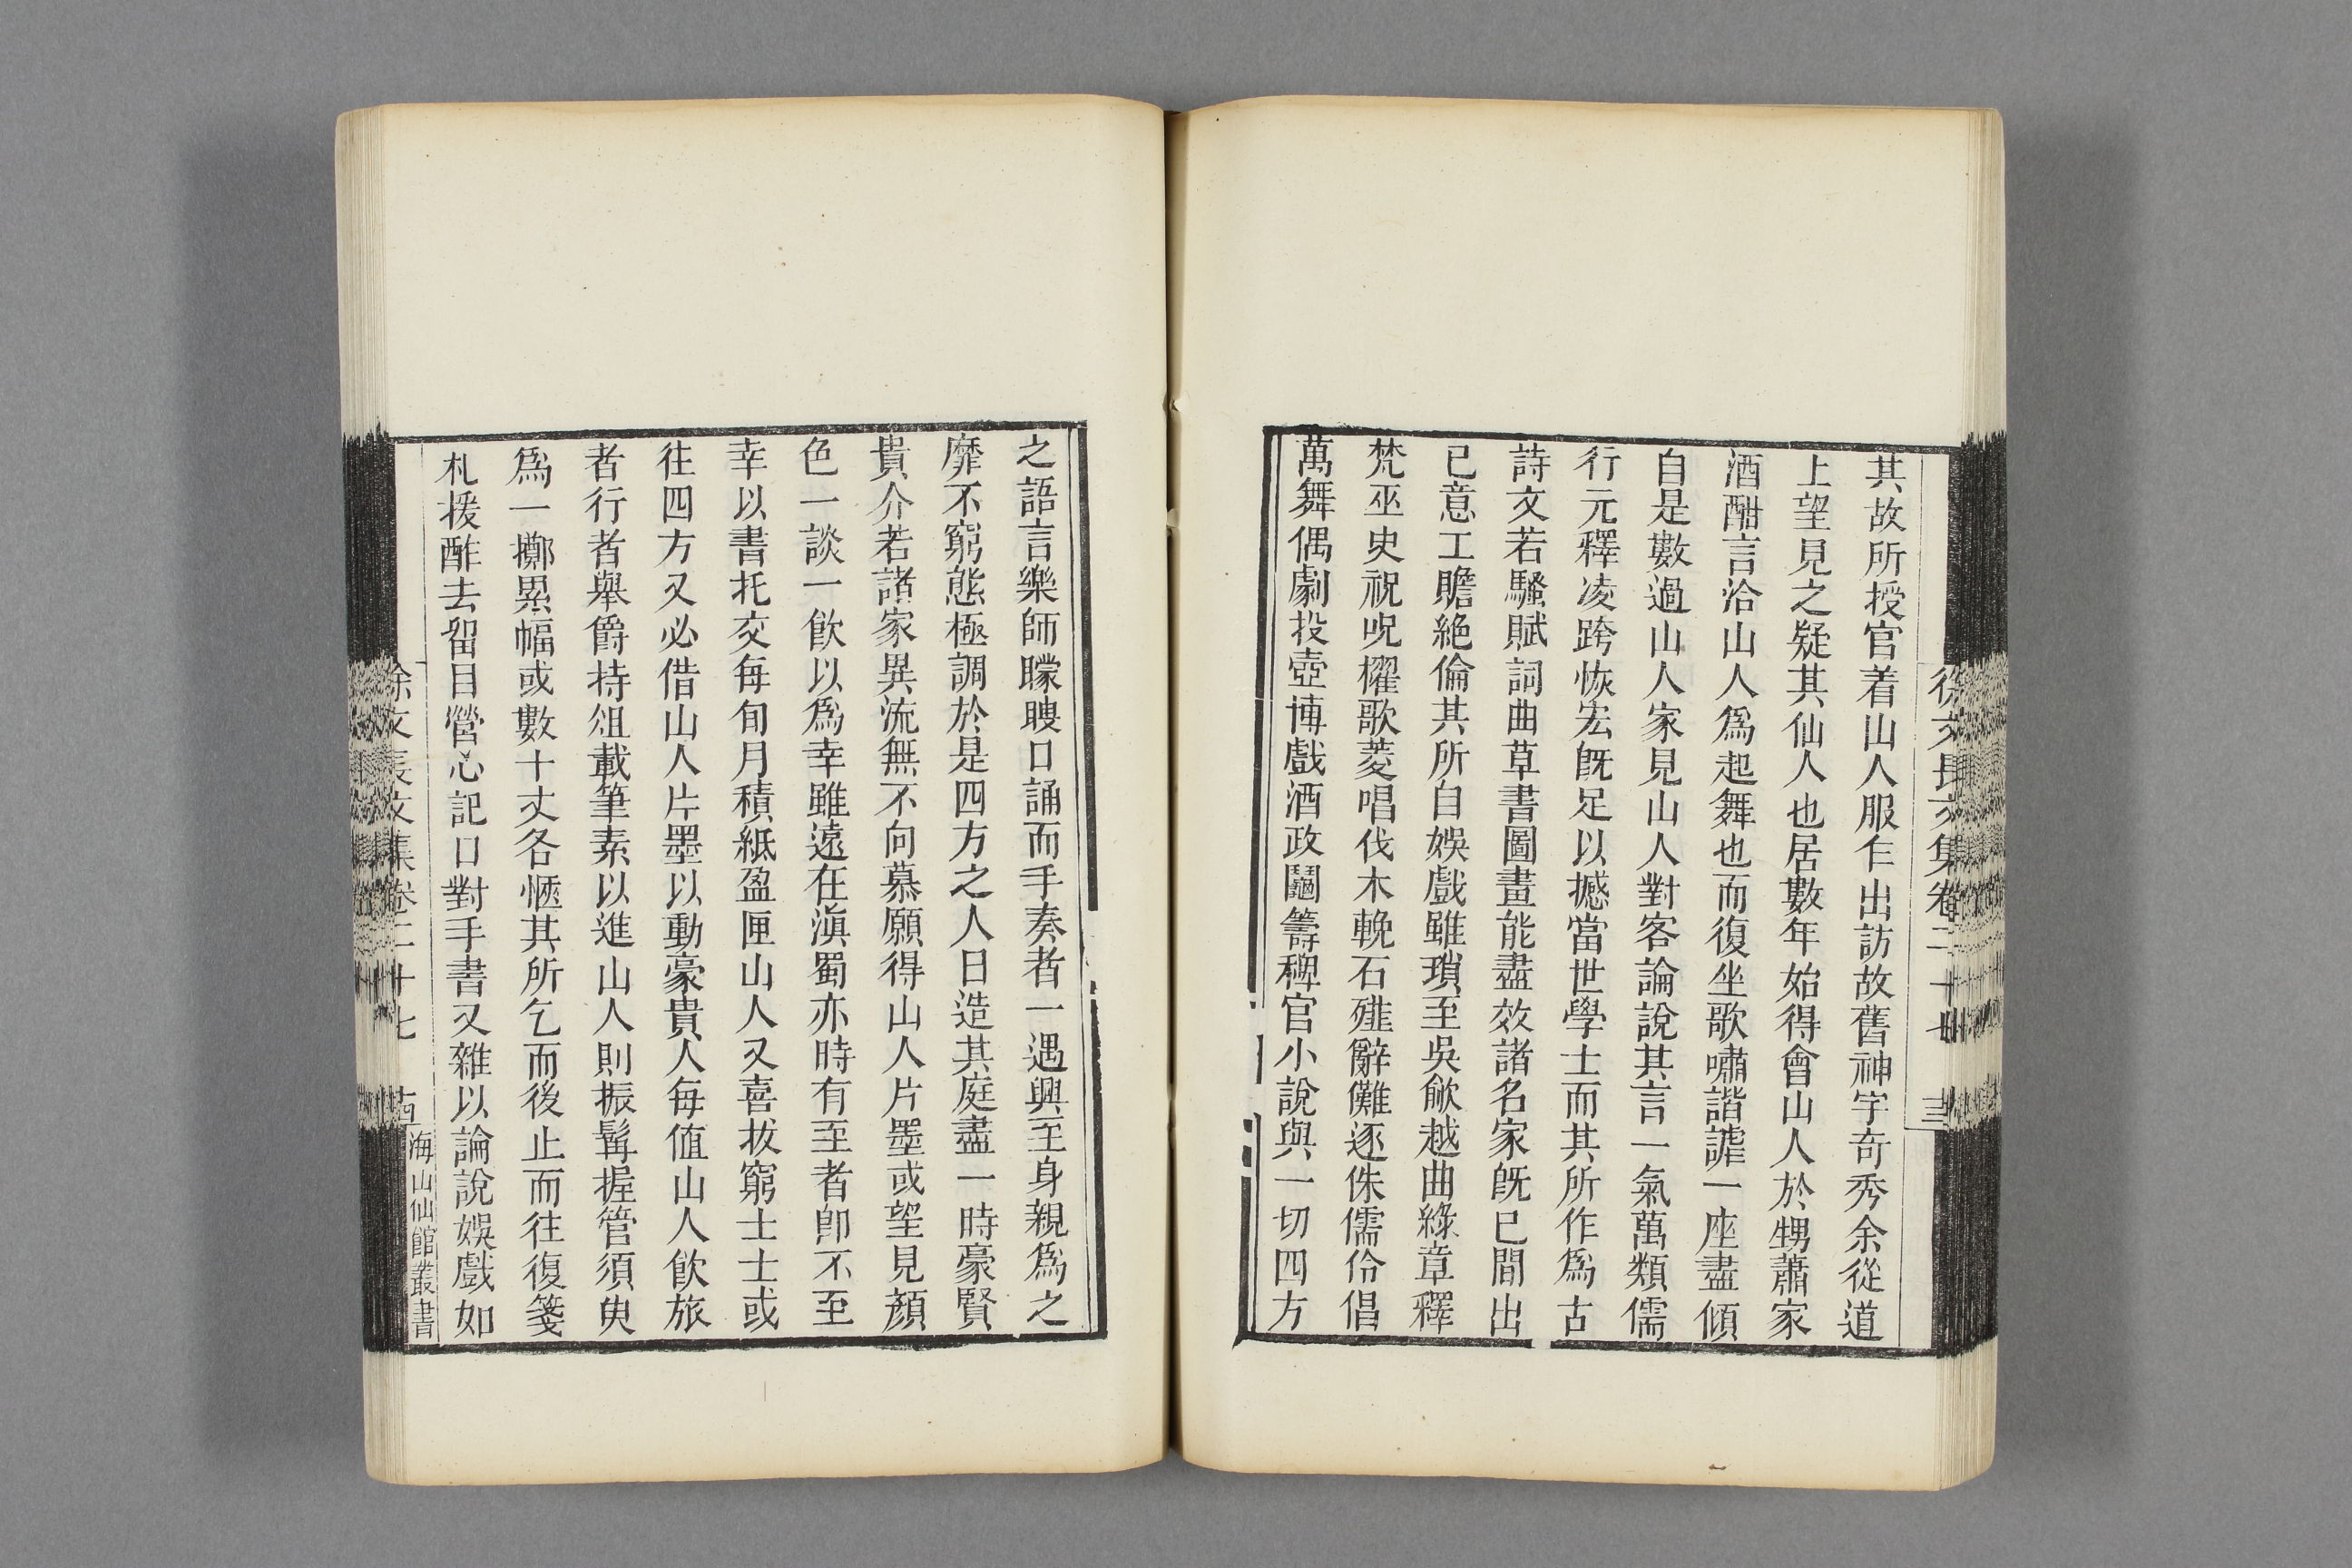 其故所授官着山人服乍出訪故舊神宇奇秀余從道
上望見之疑其仙人也居數年始得會山人於甥蕭家
酒酣言洽山人爲起舞也而復坐歌嘯諧謔一座盡傾
自是數過山人家見山人對客論說其言一氣萬類儒
行元釋凌跨恢宏既足以撼當世學士而其所作爲古
詩文若騷賦詞曲草書圖畫能盡效諸名家既已間出
己意工贍絕倫其所自娛戲雖瑣至吳歈越曲綠章釋
梵巫史祝呪櫂歌菱唱伐木輓石薤辭儺逐侏儒伶倡
萬舞偶劇投壺博戲酒政鬮籌稗官小說與一切四方
之語言樂師矇瞍口誦而手奏者一遇興至身親爲之
靡不窮態極調於是四方之人日造其庭盡一時豪賢
貴介若諸家異流無不向慕願得山人片墨或望見顏
色一談一飲以爲幸雖遠在滇蜀亦時有至者卽不至
幸以書托交每旬月積紙盈匣山人又喜拔窮士士或
往四方又必借山人片墨以動豪貴人每值山人飲旅
者行者舉爵持俎載筆素以進山人則振髯握管須臾
爲一擲累幅或數十丈各愜其所乞而後止而往復箋
札援酢去留目營心記口對手書又雜以論說娛戲如
徐文長文集卷二十七
海山仙館叢書